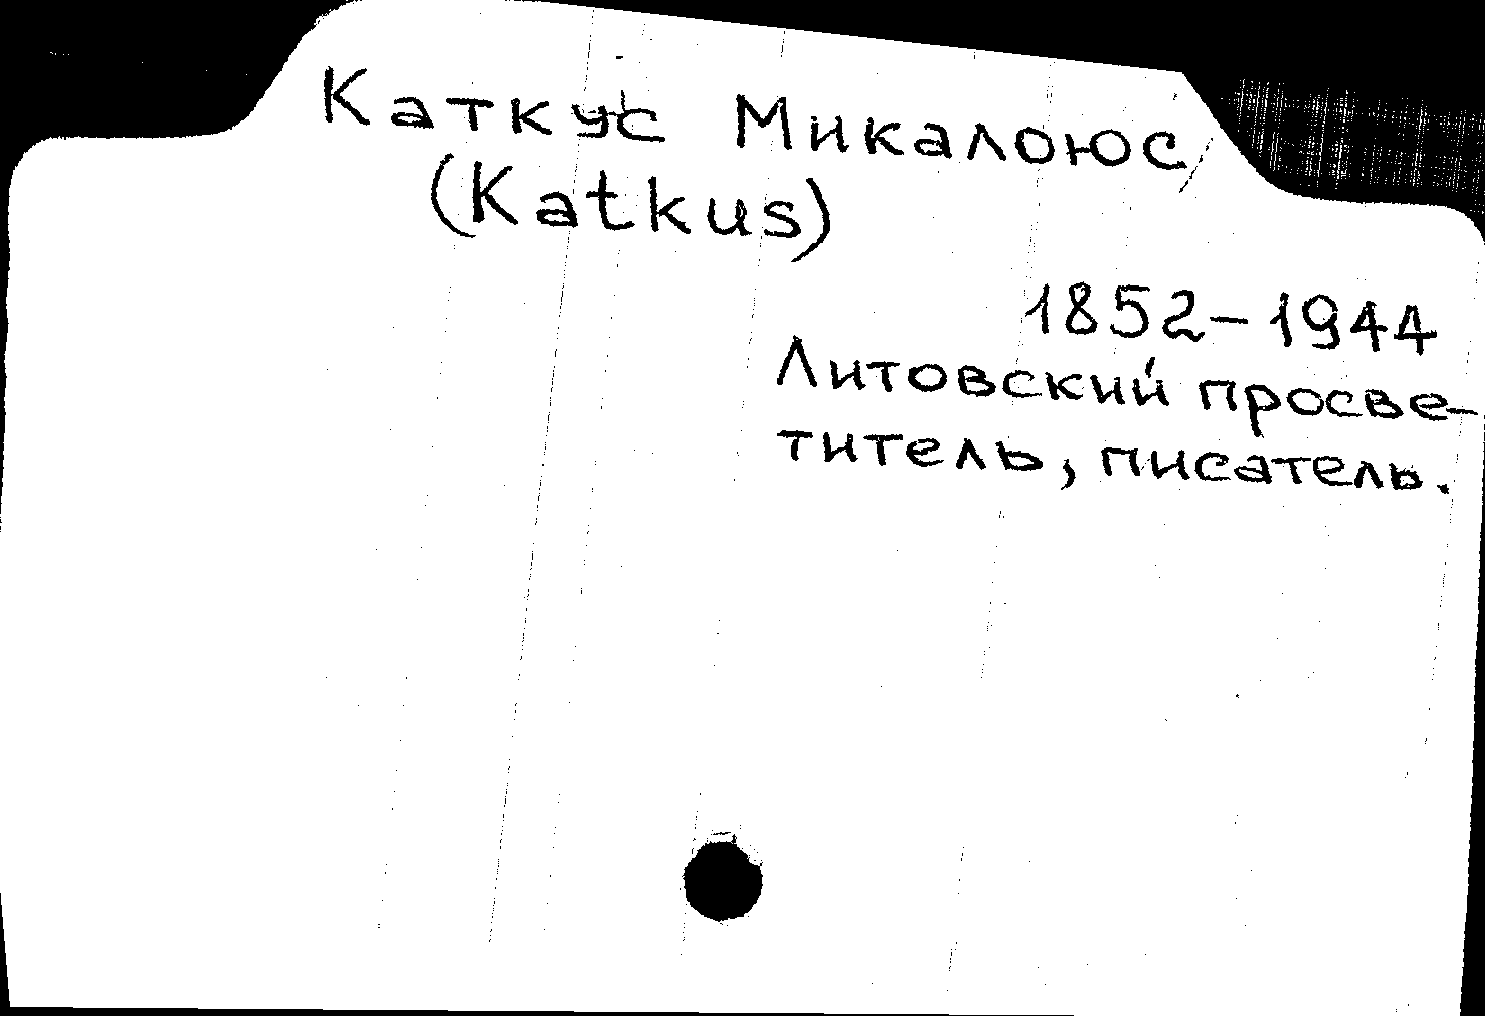 Каткус Микалоюс
(Katkus)
1852-1944
Литовский просве-
титель, писатель.